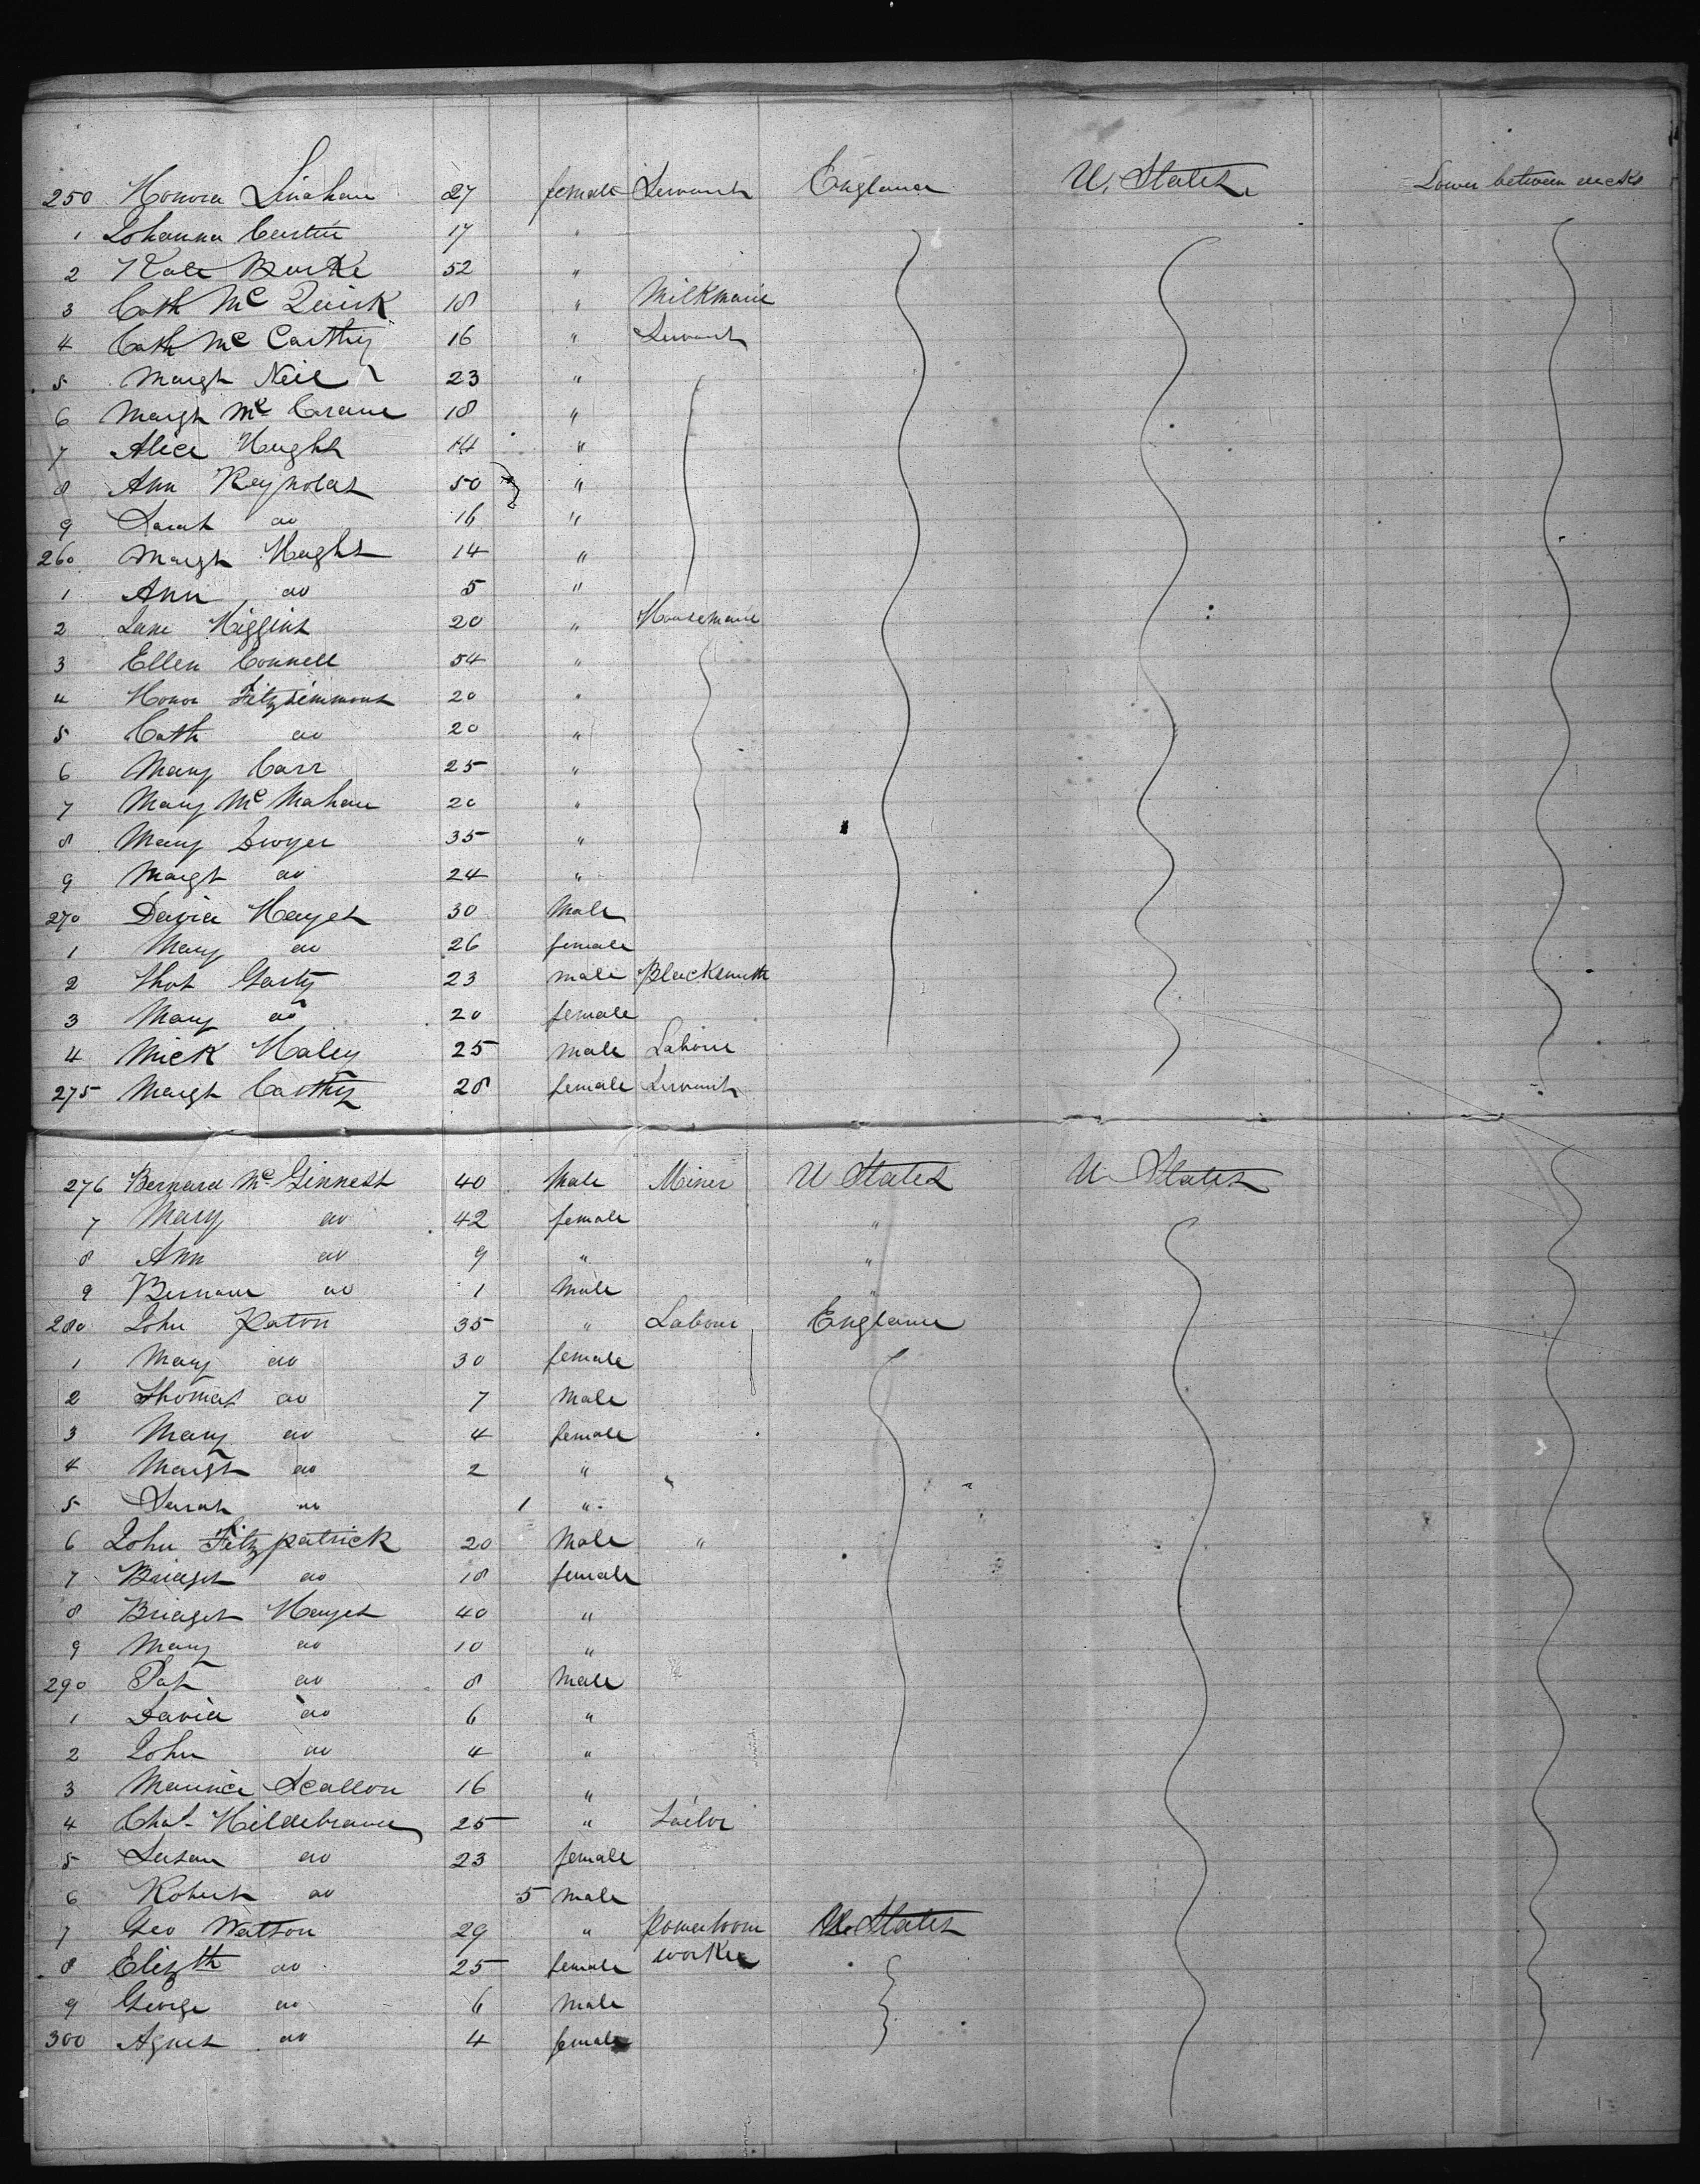 250 Honora Linahan 27 female Servant England U. States Lower between decks
1 Johanna Curtin 17 "
2 Kate Burke 52 "
3 Cath Mc Quirk 18 " Milkmaid
4 Cath Mc Carthy 16 " Servant
5 Margt Neil 23 "
6 Margt Mc Crane 18 "
7 Alice Hught 14 "
8 Ann Reynolds 50 "
9 Sarah do 16 "
260 Margt Hught 14 "
1 Ann do 5 "
2 Jane Higgins 20 " Housemaid
3 Ellen Connell 54 "
4 Honor Fitzsimmons 20 "
5 Cath do 20 "
6 Mary Carr 25 "
7 Mary Mc Mahon 20 "
8 Mary Dwyer 35 "
9 Margt do 24 "
270 David Hayes 30 Male
1 Mary do 26 female
2 Thos Garty 23 male Blacksmith
3 Mary do 20 female
4 Mick Haley 25 male Labour
275 Margt Carthy 28 female Servant
276 Bernard Mc Ginness 40 Male Miner U States U States
7 Mary do 42 female "
8 Ann do 9 " "
9 Bernard do 1 Male "
280 John Paton 35 " Labour England
1 Mary do 30 female
2 Thomas do 7 Male
3 Mary do 4 female
4 Margt do 2 "
5 Sarah do 1 "
6 John Fitzpatrick 20 Male "
7 Bridget do 18 female
8 Bridget Hayes 40 "
9 Mary do 10 "
290 Pat do 8 Male
1 David do 6 "
2 John do 4 "
3 Maurice Scallon 16 "
4 Chas Hildebrand 25 " Tailor
5 Susan do 23 female
6 Robert do 5 male
7 Geo Watson 29 " Powerloom U. States
8 Elizth do 25 female worker
9 George do 6 Male
300 Agnes do 4 female